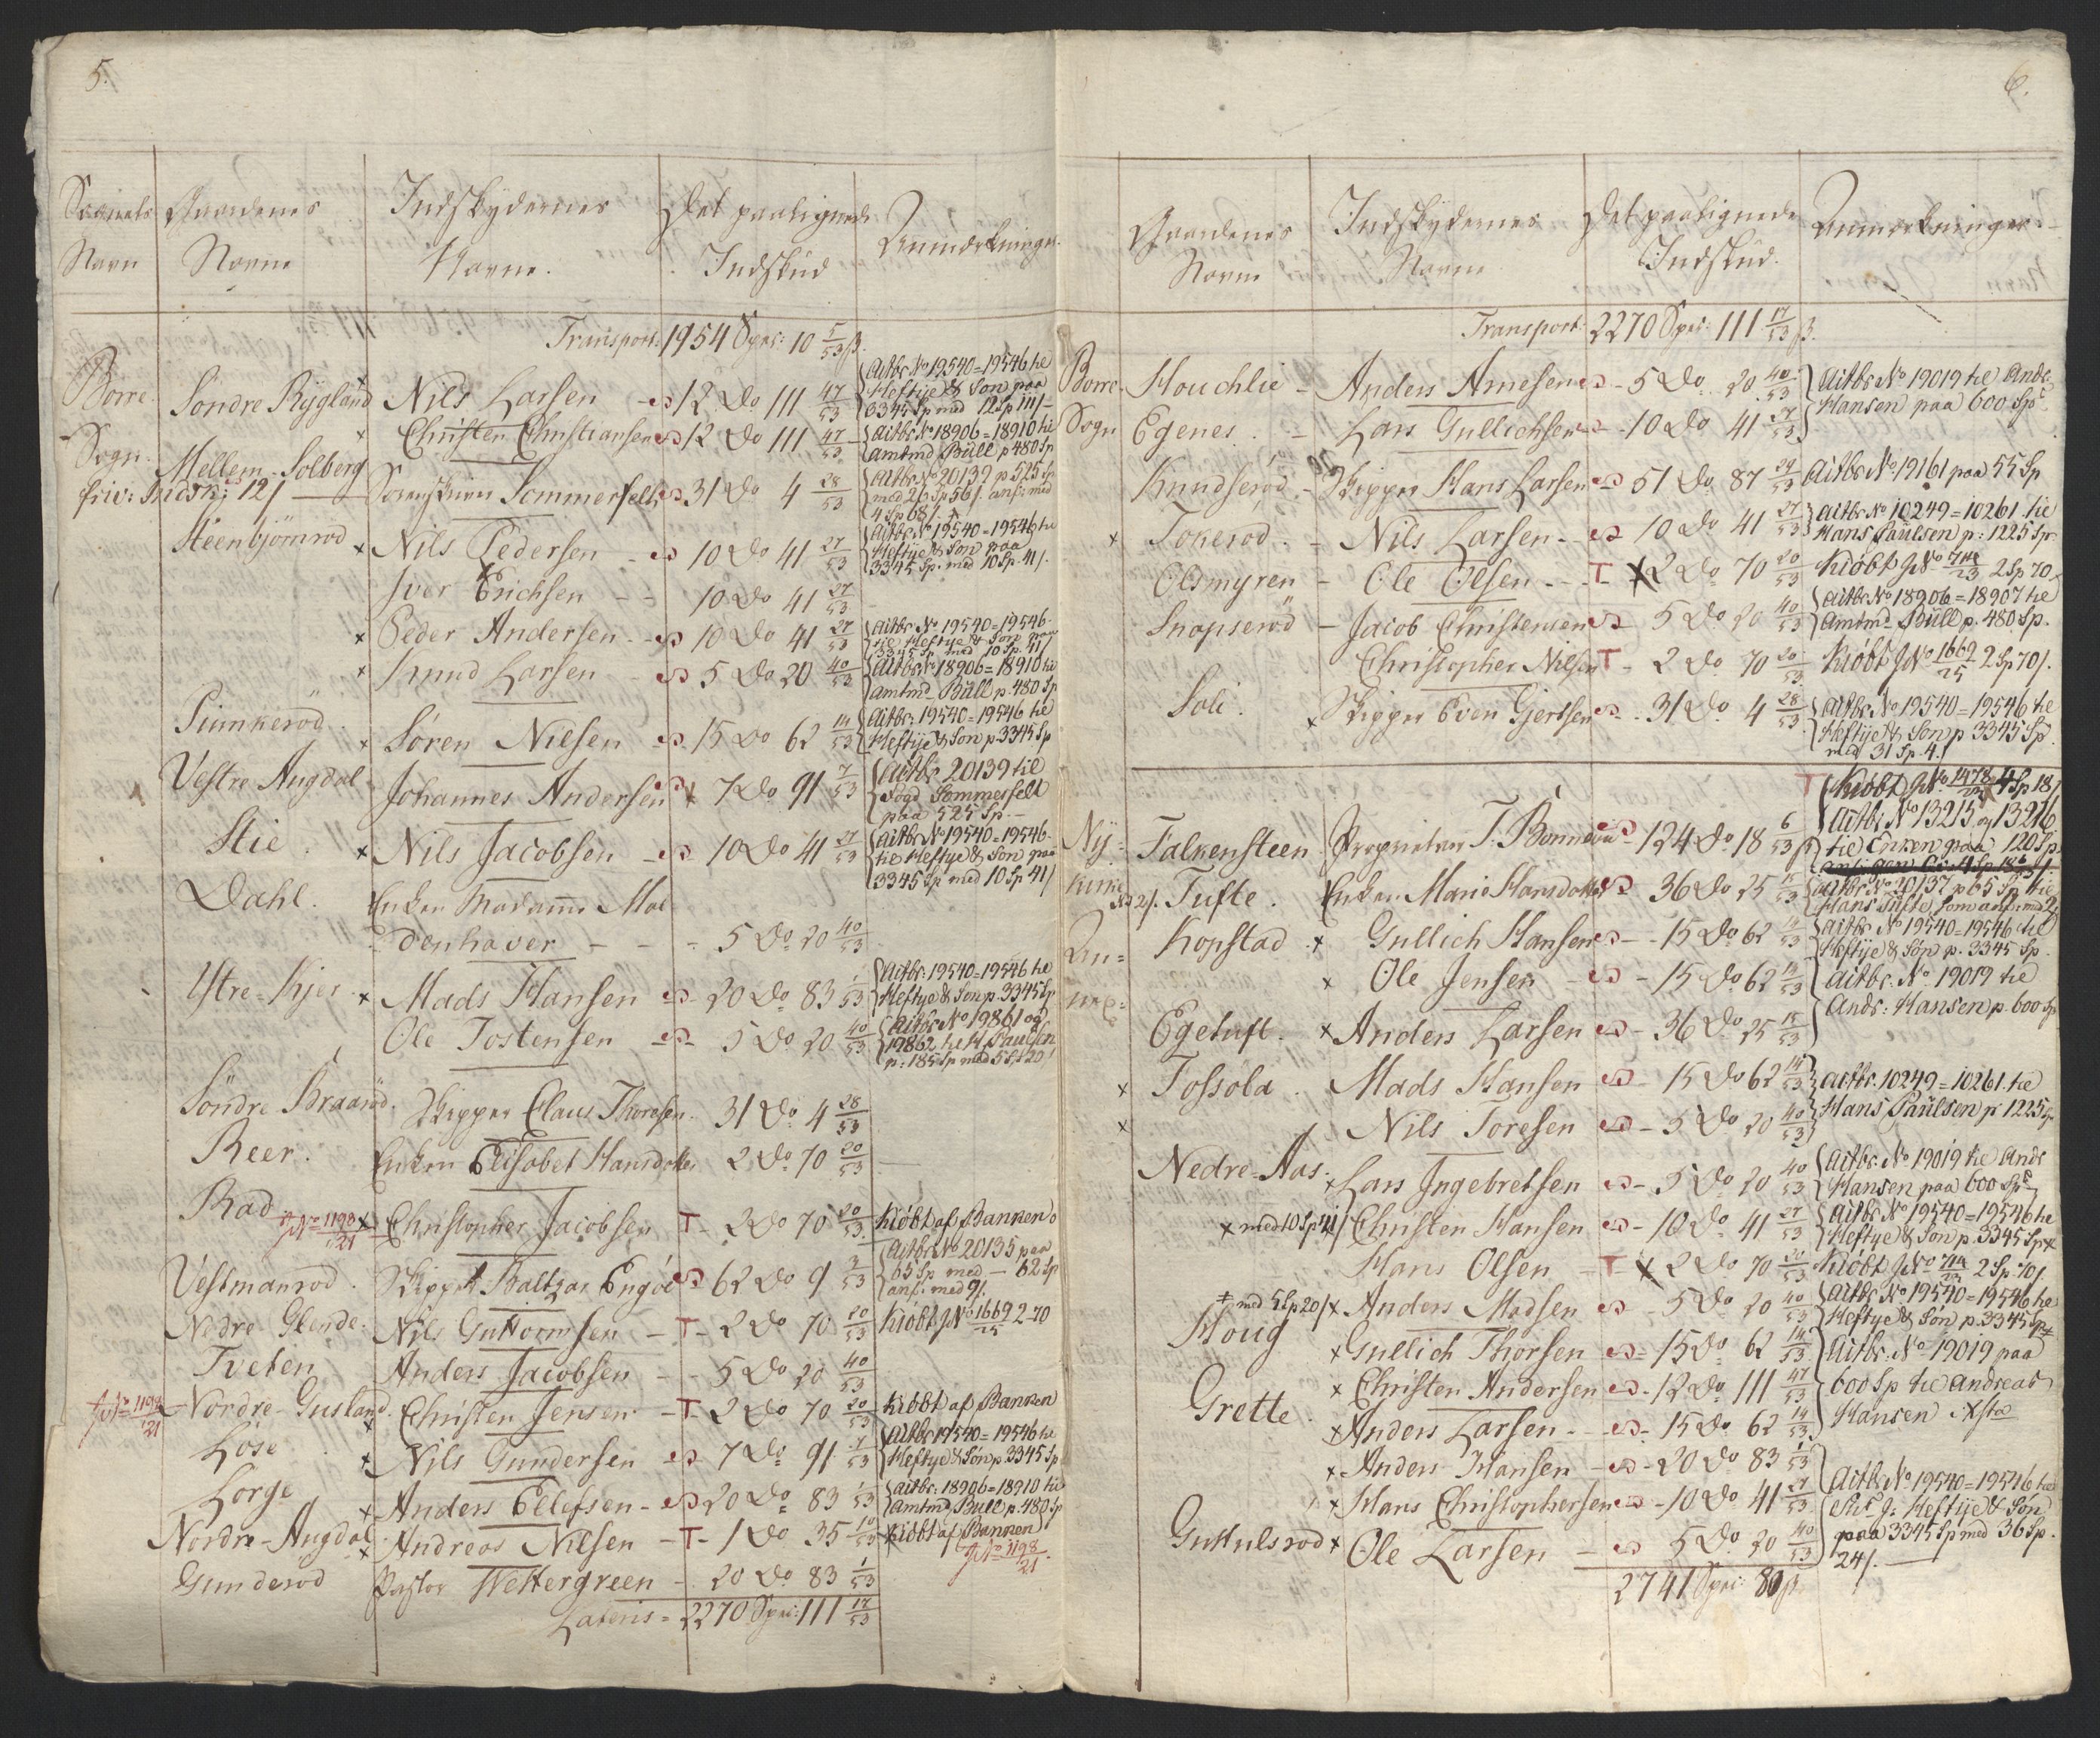 5.
Sognets Gaardenes Indskydernes Det paalignede Anmærkninger
Navn Navne Navne. Indskud
Transport: 1954 Spec: 10 5/53 ß.
Borre Söndre Rÿgland Nils Larsen 12 Do 111 47/53 Actbr. No 19540=19546 til
Heftÿe & Søn paa
3345 Sp med 12 Sp 111/-
Christen Christiansen 12 Do 111 47/53 Actbr. No 18906=18910 til
Amtmd Büll p 480 Sp
Sogn. Mellem-Solberg Sorenskriver Sommerfelt 31 Do 4 28/53 Actbr. No 20139 p 525 Sp
friv: Indsk: 12/ med 26 Sp 56/. ansf: med
4 Sp 68/.
Steenbjörnrod x Nils Pedersen 10 Do 41 27/53 Actbr. No 19540=19546 til
Heftÿe & Søn paa
3345 Sp. med 10 Sp. 41/.
Iver Erichsen 10 Do 41 27/53
x Peder Andersen 10 Do 41 27/53 Actbr. No 19540=19546
til Heftye & Søn paa
3345 Sp med 10 Sp. 41/
x Knud Larsen 5 Do 20 40/53 Actbr. No 18906=18910 til
Amtmd Büll p. 480 Sp
x Søren Nilsen 15 Do 62 14/53 Actbr. 19540=19546 til
Heftÿe & Søn p. 3345 Sp
Vestre Augdal Johannes Andersen x 7 Do 91 7/53 Actbr. 20139 til
Fogd Sommerfelt
paa 525 Sp.
Stie x Nils Jacobsen 10 Do 41 27/53 Actbr. No 19540=19546
til Heftye & Søn paa
3345 Sp med 10 Sp 41/
Dahl. Enken Madamme Mol
denhaver 5 Do 20 40/53
Ystre-Kjer x Mads Hansen 20 Do 83 1/53 Actbr. 19540=19546 til
Heftye & Søn p. 3345 Sp
Ole Tostensen 5 Do 20 40/53 Actbr. No 19861 og
19862 til H. Paulsen
p: 185 Sp med 5 Sp 20/
Söndre Braaröd. Skipper Claus Thoresen 31 Do 4 28/53
Reer. Enken Elisabet Hansdatter 2 Do 70 20/53
Rad Christopher Jacobsen T 2 Do 70 20/53 Kiöbt af Banken
No 1198/21
Vestmanrod. Skipper Baltzar Engöe 62 Do 9 3/53 Actbr. No 20135 paa
65 Sp med 62 Sp
ansf: med 9/.
Nedre Glende Nils Guttormsen T 2 Do 70 20/53 Kiöbt No 1669/25 2-70
Tveten Anders Jacobsen 5 Do 20 40/53
No 1198/21 Nordre-Gusland Christen Jensen T 2 Do 70 20/53 Kiöbt af Banken
Löse x Nils Gundersen 7 Do 91 7/53 Actbr 19540=19546 til
Heftye & Søn p. 3345 Sp
Lorge x Anders Ellefsen 20 Do 83 1/53 Actbr. 18906=18910 til
Amtmd Bull p. 480 Sp
Nordre-Augdal x Andreas Nilsen T 1 Do 35 10/53 Kiöbt af Banken
No 1198/21
Gunderod Pastor Wettergreen 20 Do 83 1/53
Lateris = 2270 Spec: 111 17/53
6.
Gaardenes Indskydernes Det paalignede Anmærkninger
Navne Navne Indskud.
Transport: 2270 Spec: 111 17/53 ß.
Borre Houchlie Anders Arnesen 5 Do 20 40/53 Actbr. No 19019 til Andr.
Hansen paa 600 Sp
Sogn Egenes Lars Gullichsen 10 Do 41 27/53
Knudseröd Skipper Hans Larsen 51 Do 87 29/53 Actbr. No 19161 paa 55 Sp
x Tokerod Nils Larsen 10 Do 41 27/53 Actbr. No 10249=10261 til
Hans Paülsen p: 1225 Sp
Olsmyren Ole Olsen T x 2 Do 70 20/53 Kiöbt No 714/23 2 Sp 70
Snopseröd Jacob Christensen 5 Do 20 40/53 Actbr. No 18906=18907 til
Amtmd Büll p. 480 Sp.
Christopher Nilsen T 2 Do 70 20/53 Kiöbt No 1669/25 2 Sp 70/.
Soli. x Skipper Even Gjertsen 31 Do 4 28/53 Actbr. No 19540=19546 til
Heftÿe & Søn p 3345 Sp.
med 31 Sp 4/.
T Kiöbt No 1478 4 Sp 18/
Nÿ- Falkensteen Proprietair T. Bonnevie 124 Do 18 6/53 Actbr. No 13215 og 13216
til Enken paa 120 Sp
kirke Tufte. Enken Marie Hansdatter 36 Do 25 15/53 Actbr. No 20137 p 65 Sp til
Hans Tufte som ansf: med 2/
An= Kopstad x Gullich Hansen 15 Do 62 14/53 Actbr. No 19540=19546 til
Heftÿe & Søn p. 3345 Sp
nex= x Ole Jensen 15 Do 62 14/53 Actbr. No 19019 til
Andr: Hansen p. 600 Sp
Egetuft. x Anders Larsen 36 Do 25 15/53
x Fossola Mads Hansen 15 Do 62 14/53 Actbr. 10249=10261 til
Hans Paülsen p 1225 Sp
x Nils Toresen 5 Do 20 40/53
Nedre-Aas. x Lars Ingebretsen 5 Do 20 40/53 Actbr. No 19019 til Andr
Hansen paa 600 Sp
x med 10 Sp 41/ Christen Hansen 10 Do 41 27/53 Actbr. No 19540=19546 til
Heftye & Søn p. 3345 Sp x
Hans Olsen T x 2 Do 70 20/53 Kiöbt No 714/23 2 Sp 70/.
med 5 Sp 20/ x Anders Madsen 5 Do 20 40/53 Actbr. No 19540=19546 til
Heftye & Søn p. 3345 Sp
Houg x Gullich Thorsen 15 Do 62 14/53 Actbr. No 19019 paa
x Christen Andersen 12 Do 111 47/53 600 Sp til Andreas
Grette. x Anders Larsen 15 Do 62 14/53 Hansen
x Anders Hansen 20 Do 83 1/53
x Hans Christophersen 10 Do 41 27/53 Actbr. No 19540=19546 til
J: Heftÿe & Søn
Guttulsrod x Ole Larsen 5 Do 20 40/53 paa 3345 Sp med 36 Sp.
24/.
2741 Spec: 80 ß.